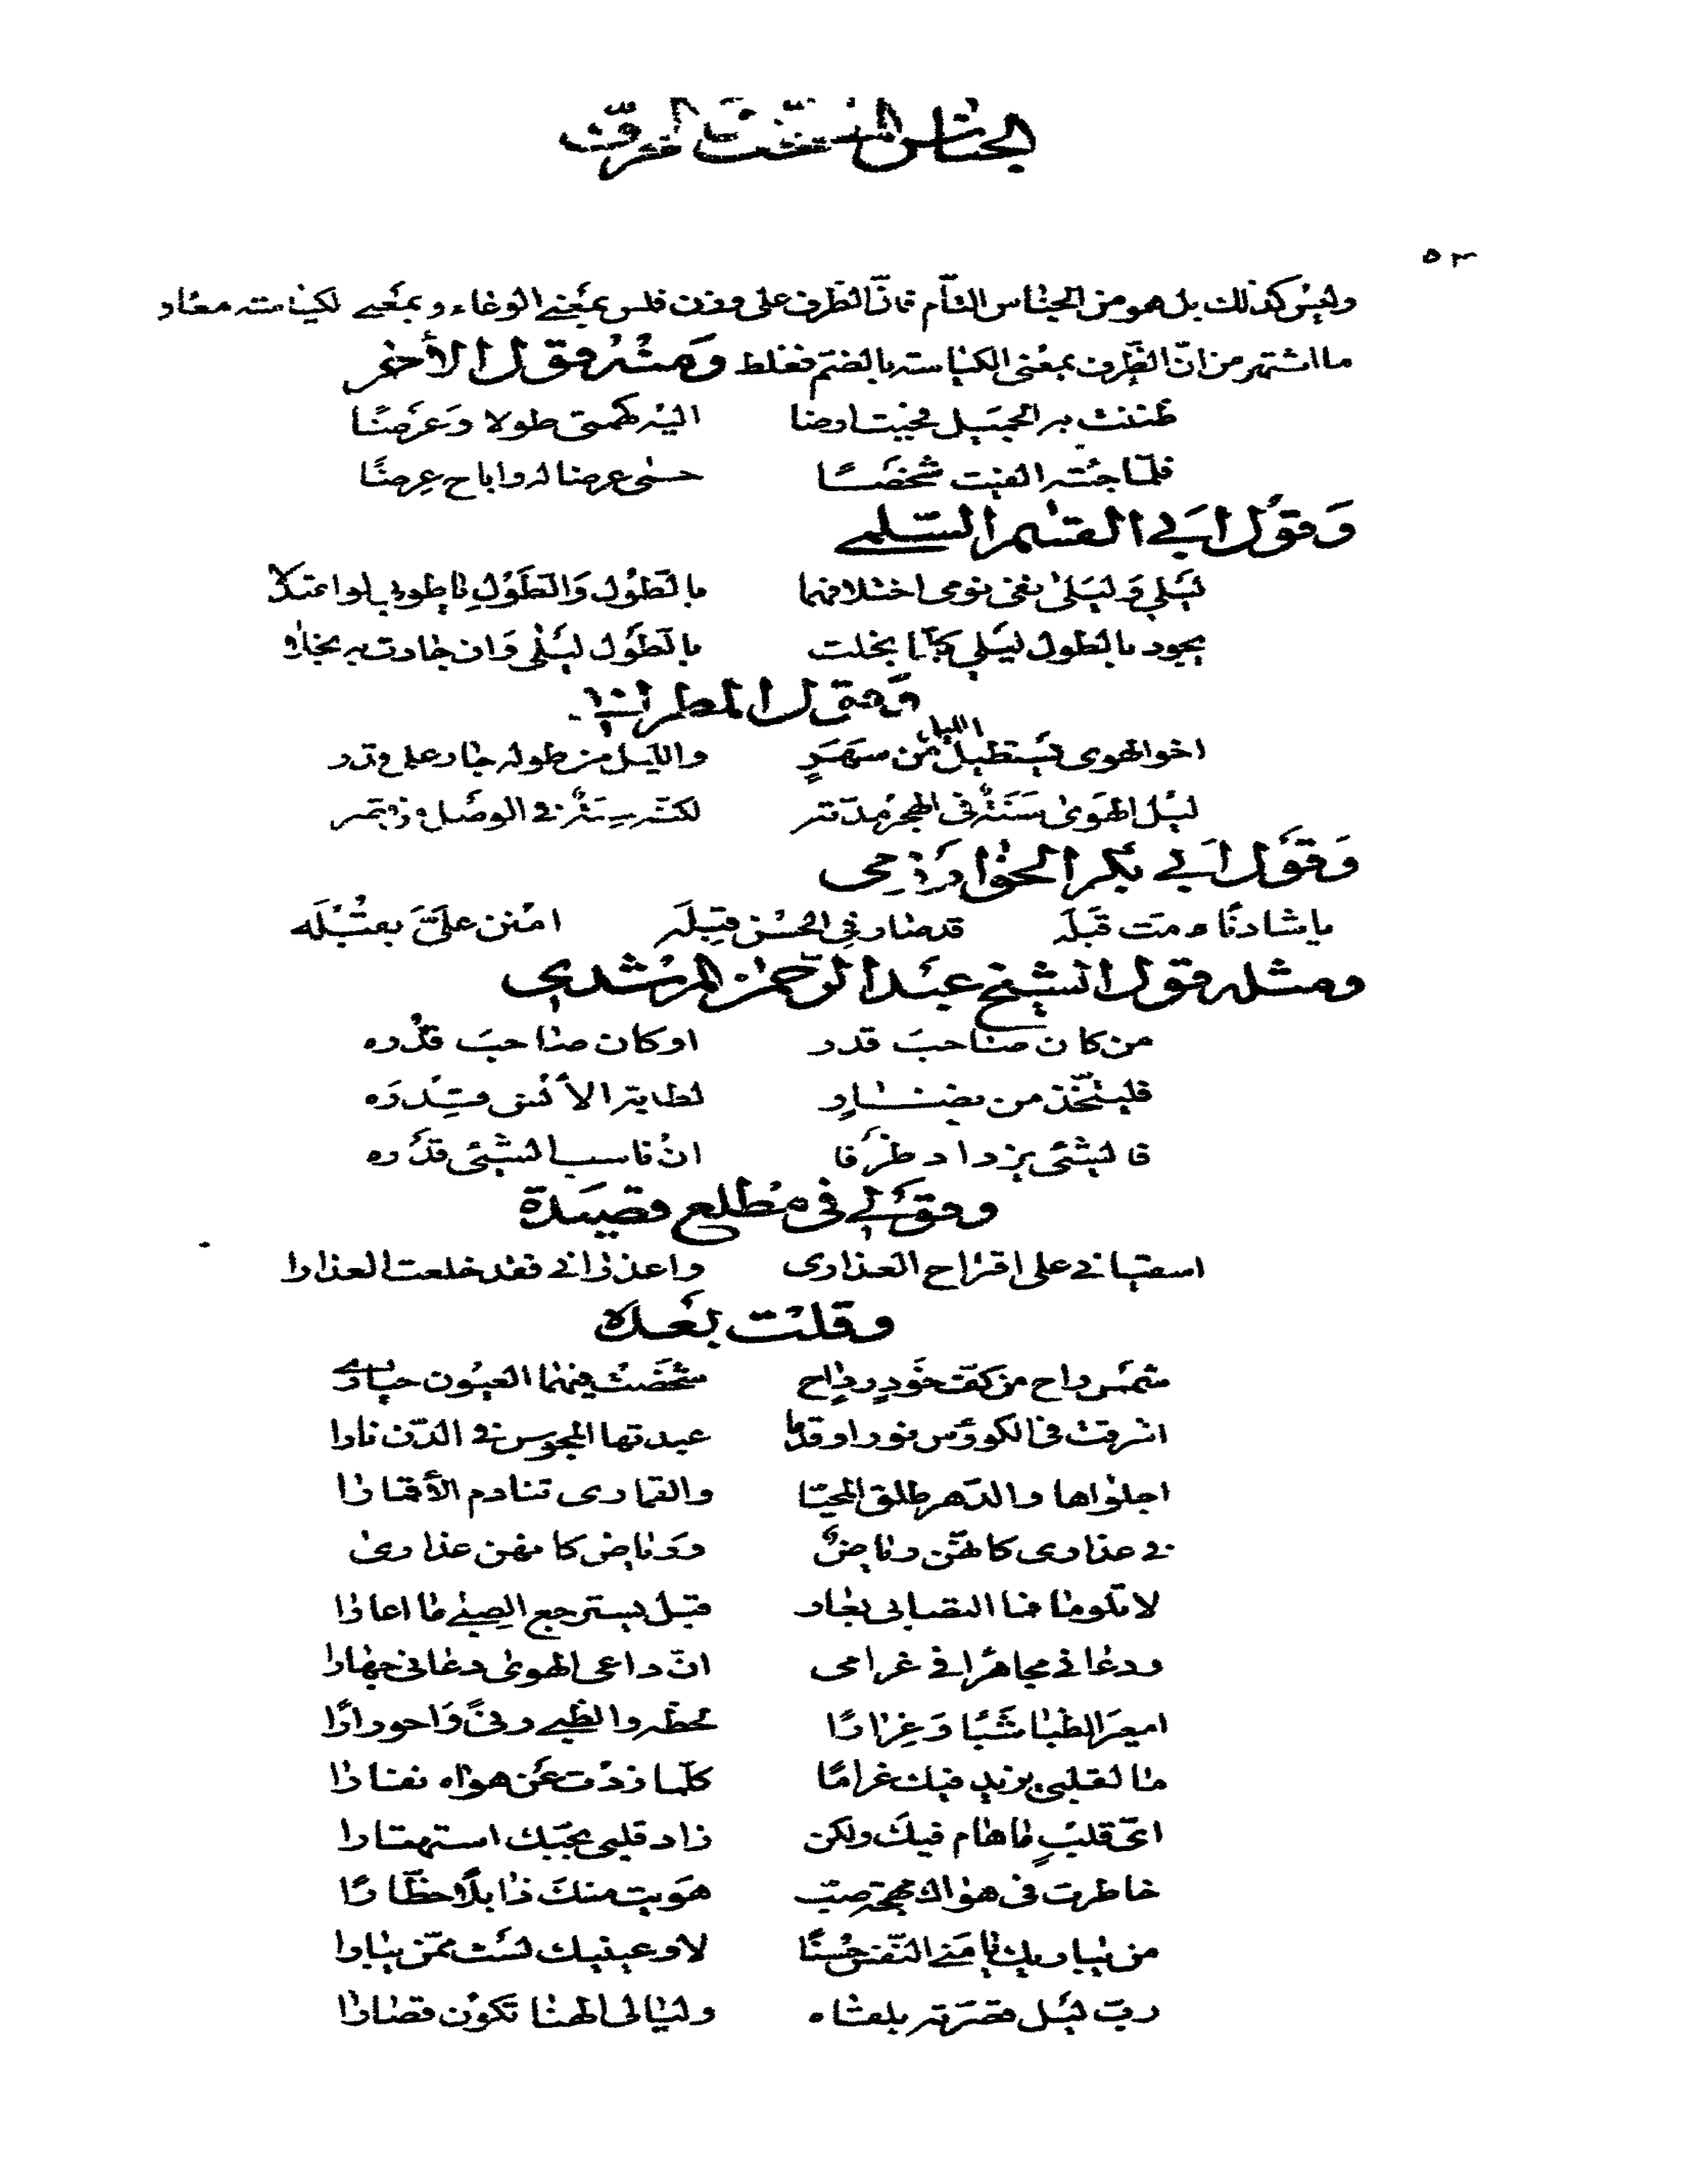 الجناس
٥٣
وليس كذلك بل هو من الجناس التام فان الظرف على وزن فلس بمعنى الوعاء وبمعنى لكياسته معاد
ما اشتهر من ان الظرف بمعنى الكياسته بالضم فغلط ومثله قول الأخر
ظننت به الجميل فجيت ارضا اليه كهمتى طولا وَعَرضًا
فلما جئته الفيت شخصًا حمى عرضا له واباح عِرضًا
وقول ابى القسم السلمى
ليلى وَليلى نفى نومى اختلافهما بالطول وَالطَول يا طوبى لو اعتدلا
يجود بالطول ليلى كلما بخلت بالطَول ليلى وَان جادت به بخلا
وقول المطرانى
اخو الهوى يستطيل الليل من سهَرٍ والليل من طوله جار على قدر
ليل الهوى سَنَة فى الهجر مدته لكنه سِنة فى الوصل
وقول ابى بكر الخوارزمى
يا شادنًا مت قَبلَه قد صار فى الحسن قِبلَه امنن علىَّ بقُبْلَه
ومثله قول الشيخ عبد الرحمن المرشدى
من كان صاحبَ قدر او كان صاحبَ قُدْره
فليتخذ من نضار لطابة الأنس قِدْرَه
فالشئى يزداد ظرفا ان ناسب الشئى قَدْره
وقولى فى مطلع قصيدة
اسقيانى على اقتراح العذارى واعذرانى فقد خلعت العذارا
وقلت بعده
شمس راح من كف خَودٍ رداح شخصت فيهما العيون حيارى
اشرقت فى الكووس نورا وقدما عبدتها المجوس فى الدّن نارا
اجلواها والدهر طلق المحيا والقمارى تنادم الأقمارا
فى عذارى كانهن رياض ورياض كانهن عذارى
لا تلوما فما التصابى بعار قبل يسترجع الصبى ما اعارا
ودعانى مجاهرا فى غرامى ان داعى الهوى دعانى جهارا
امعير الظبا شَبًا وَغِرارًا لحظه والظبى رنًى وَاحورارًا
ما لقلبى يزيد فيك غرامًا كلما زدت عن هواه نفارا
اىّ قلبٍ ما هام فيكَ ولكن زاد قلبى بحبّك استهتارا
خاطرت فى هواك مهجة صب هَوِيت منكَ ذابلًا خطّارًا
من يباريك يا مَنى النفس حُسنًا لا وعينيك لست ممن يبارا
ربّ ليل قصرته بلقاه وليالى الهنا تكون قصارا